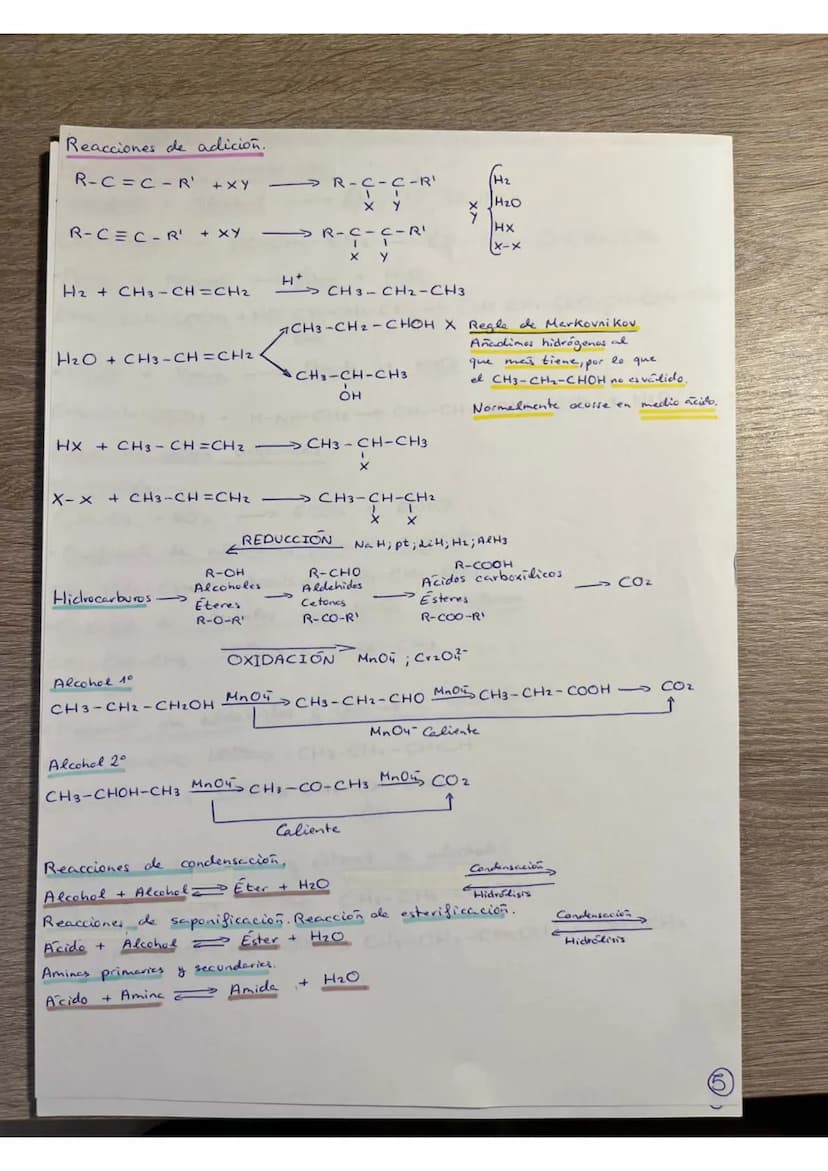 Reacciones de adición.
R-C=C-R' + XY ⟶ R-C-C-R'
X Y
X Y { H2
H2O
HX
X-X
R-C≡C-R' + XY ⟶ R-C-C-R'
X Y
H2 + CH3-CH=CH2 H+⟶ CH3-CH2-CH3
H2O + CH3-CH=CH2
CH3-CH2-CHOH X
CH3-CH-CH3
OH
Regla de Markovnikov
Añadimos hidrógenos al
que más tiene, por lo que
el CH3-CH2-CHOH no es válido.
Normalmente ocurre en medio ácido.
HX + CH3-CH=CH2 ⟶ CH3-CH-CH3
X
X-X + CH3-CH=CH2 ⟶ CH3-CH-CH2
X X
REDUCCIÓN NaH; pt; LiH; H2; AlH3
R-OH R-CHO R-COOH
Hidrocarburos ⟶ Alcoholes ⟶ Aldehidos ⟶ Ácidos carboxílicos ⟶ CO2
Éteres Cetonas Ésteres
R-O-R' R-CO-R' R-COO-R'
OXIDACIÓN MnO4-; Cr2O7 2-
Alcohol 1º
CH3-CH2-CH2OH MnO4-⟶ CH3-CH2-CHO MnO4-⟶ CH3-CH2-COOH ⟶ CO2
MnO4- Caliente
Alcohol 2º
CH3-CHOH-CH3 MnO4-⟶ CH3-CO-CH3 MnO4-⟶ CO2
Caliente
Reacciones de condensación.
Alcohol + Alcohol ⇌ Éter + H2O
Condensación
Hidrólisis
Reacciones de saponificación. Reacción de esterificación.
Ácido + Alcohol ⇌ Éster + H2O
Condensación
Hidrólisis
Aminas primarias y secundarias.
Ácido + Amina ⇌ Amida + H2O
5